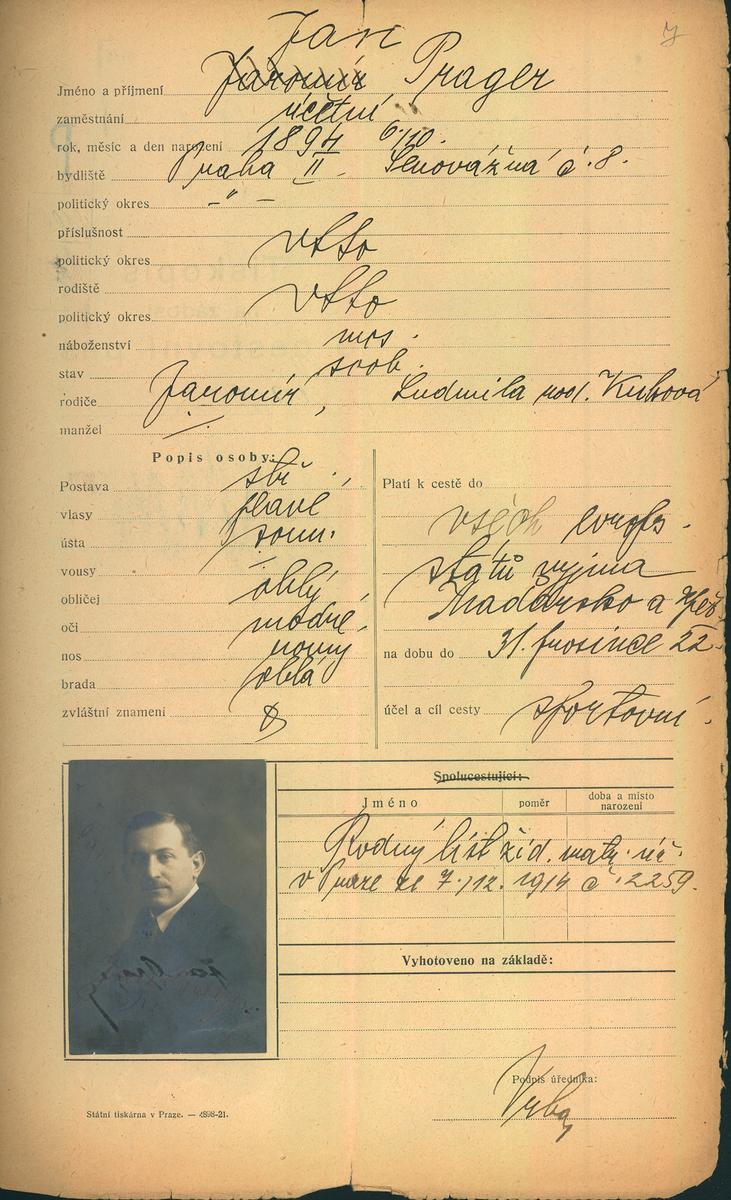 Jan
Jméno a příjmení Jaromír Prager
zaměstnání účetní
rok, měsíc a den narození 1894 6.10.
bydliště Praha II - Senovážná č. 8.
politický okres -"-
příslušnost
politický okres
rodiště
politický okres
náboženství
stav svob.
rodiče Jaromír, Ludmila roz.
manžel
Popis osoby:
Postava stř.
vlasy plavé
ústa soum.
vousy —
obličej oblý
oči modré
nos rovný
brada oblá
zvláštní znamení
Platí k cestě do
všech evrops.
států vyjma
Maďarsko a
na dobu do 31. prosince 22
účel a cíl cesty sportovní.
Spolucestující:
Jméno poměr doba a místo narození
Rodný list žid. matr. úř.
v Praze ze 7./12. 1914 č. 2259.
Vyhotoveno na základě:
Podpis úředníka:
Státní tiskárna v Praze. — 4898-21.